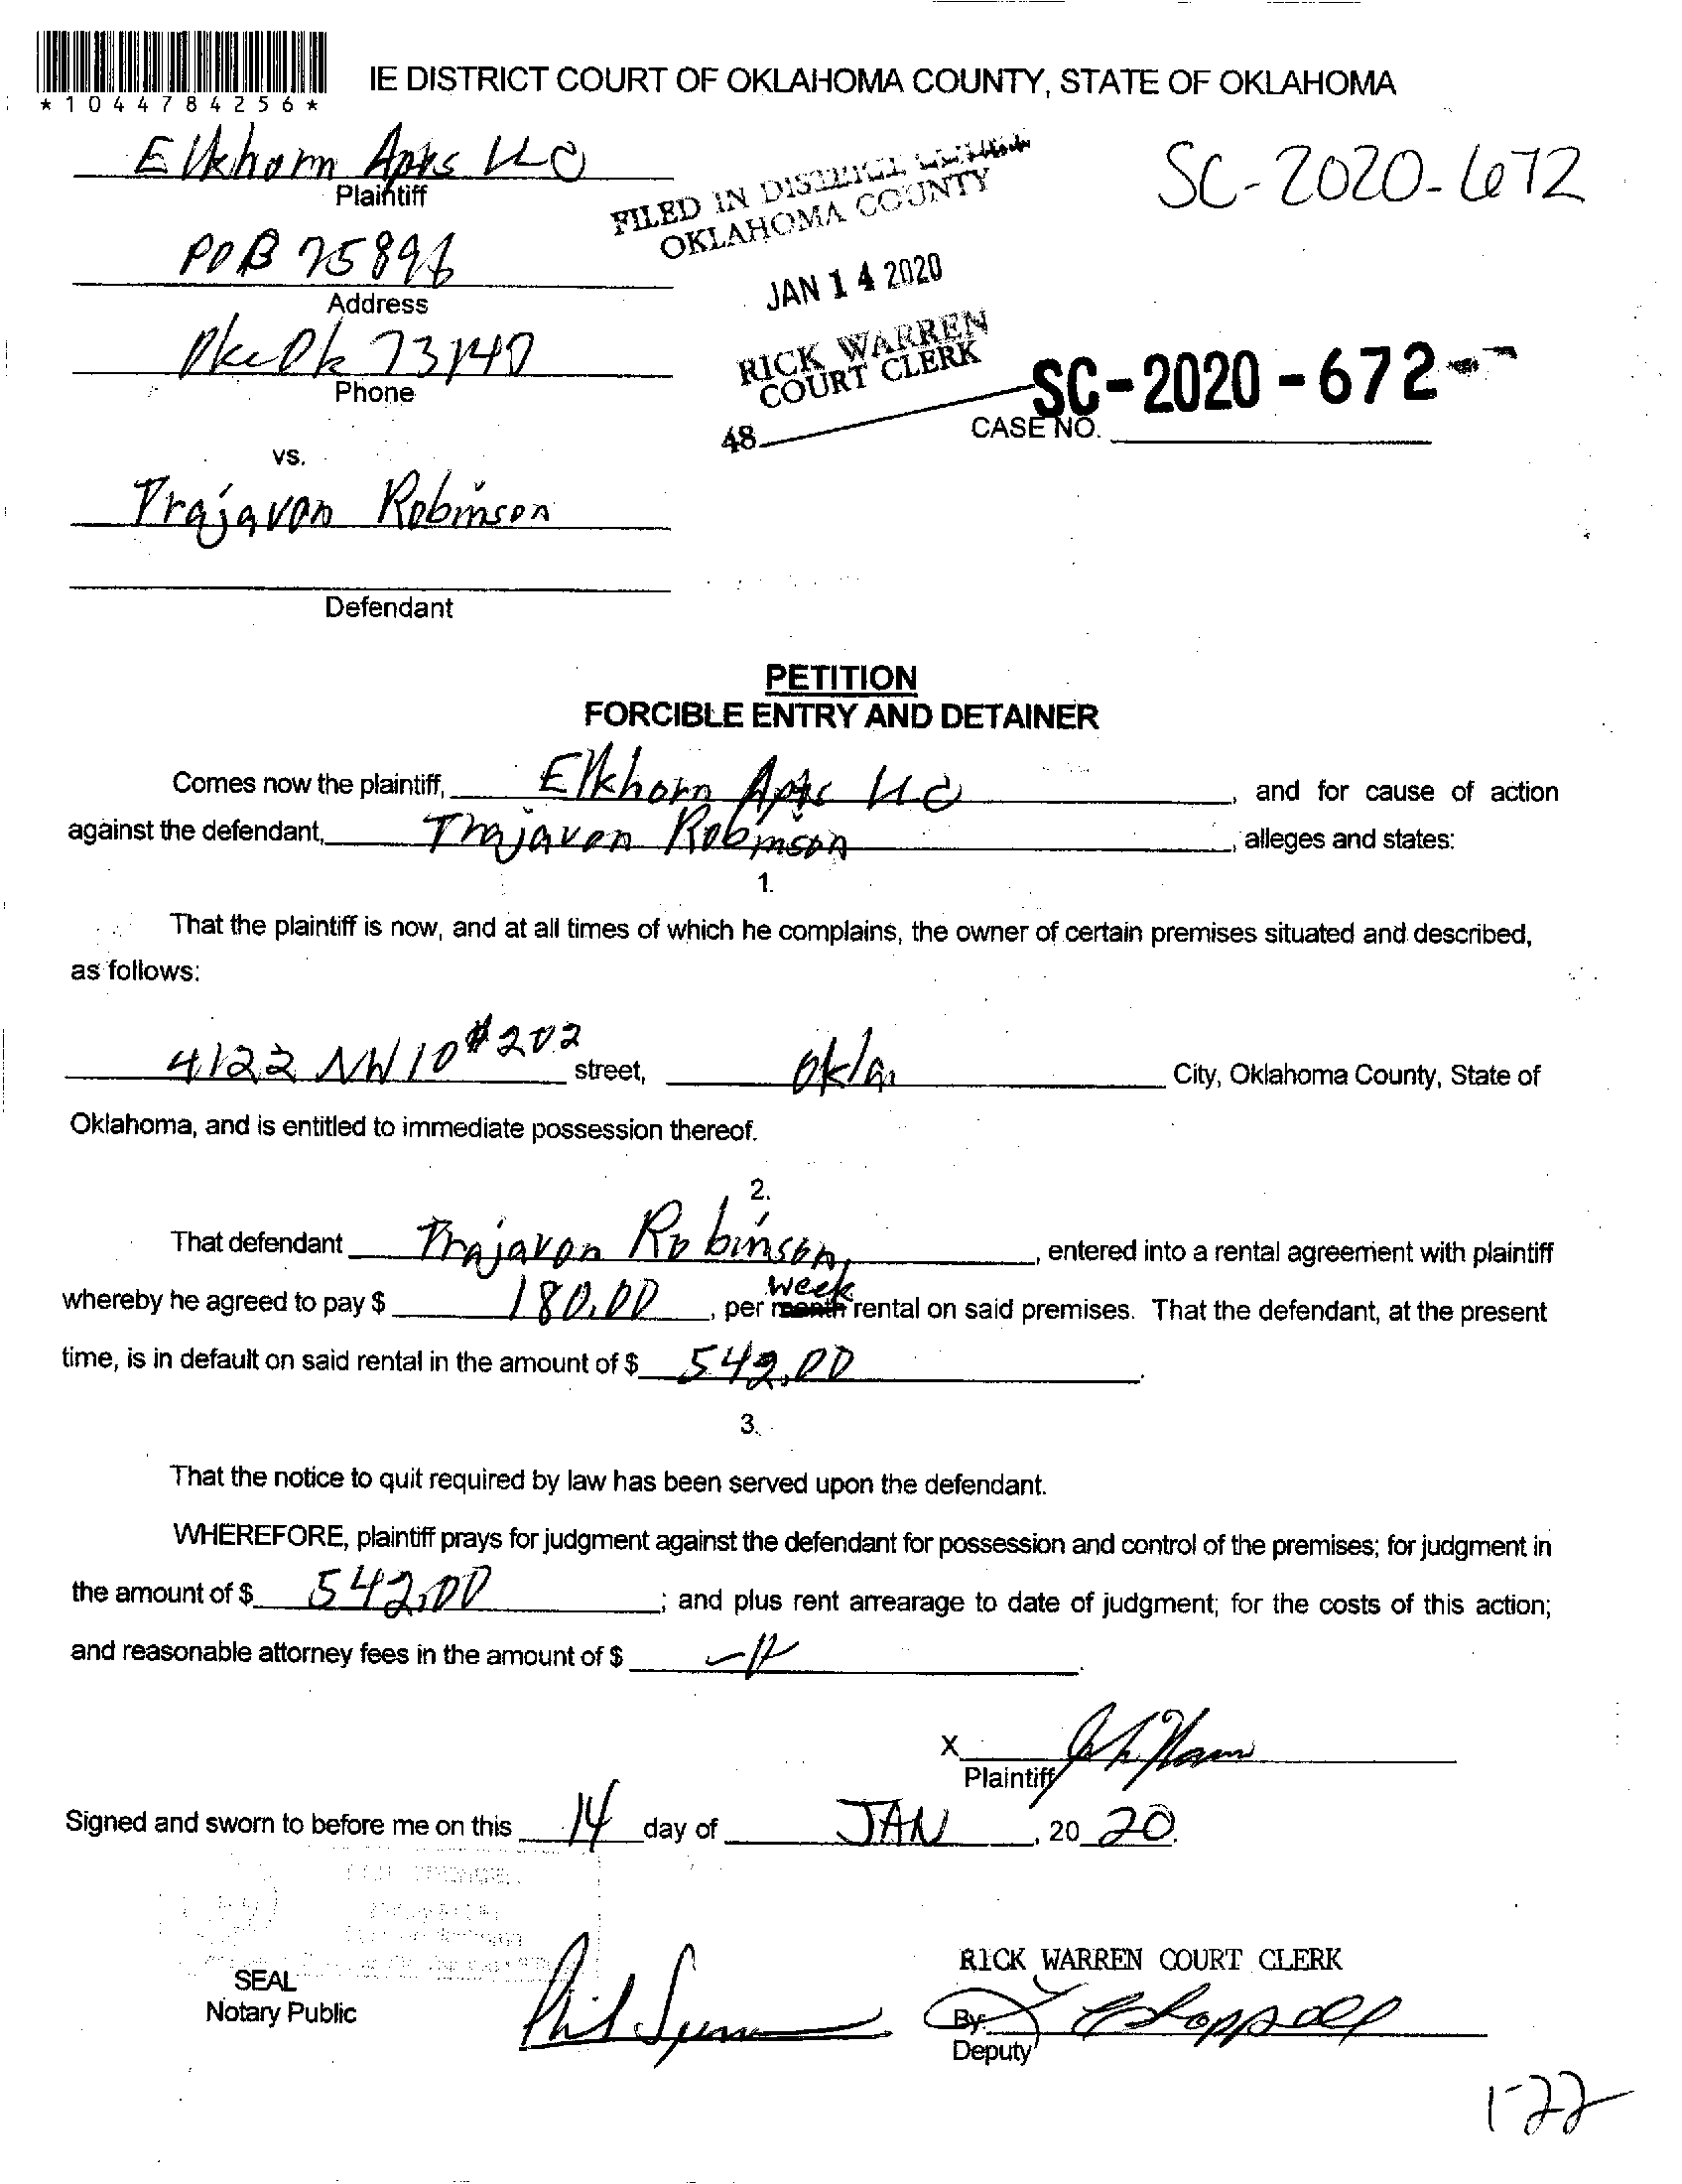 *1044784256*
IE DISTRICT COURT OF OKLAHOMA COUNTY, STATE OF OKLAHOMA
Elkhorn Apts LLC
Plaintiff
FILED IN DISTRICT COURT
OKLAHOMA COUNTY
SC-2020-672
POB 75896
Address
JAN 14 2020
OkcOk 73140
Phone
RICK WARREN
COURT CLERK
SC-2020-672--
48
CASE NO.
vs.
Trajavon Robinson
Defendant
PETITION
FORCIBLE ENTRY AND DETAINER
Comes now the plaintiff, Elkhorn Apts LLC, and for cause of action
against the defendant, Trajavon Robinson, alleges and states:
1.
That the plaintiff is now, and at all times of which he complains, the owner of certain premises situated and described,
as follows:
4122 NW 10 #202 street, Okla. City, Oklahoma County, State of
Oklahoma, and is entitled to immediate possession thereof.
2.
That defendant Trajavon Robinson, entered into a rental agreement with plaintiff
week
whereby he agreed to pay $ 180.00, per month rental on said premises. That the defendant, at the present
time, is in default on said rental in the amount of $ 542.00.
3.
That the notice to quit required by law has been served upon the defendant.
WHEREFORE, plaintiff prays for judgment against the defendant for possession and control of the premises; for judgment in
the amount of $ 542.00; and plus rent arrearage to date of judgment; for the costs of this action;
and reasonable attorney fees in the amount of $
X
Plaintiff
Signed and sworn to before me on this 14 day of JAN, 20 20.
RICK WARREN COURT CLERK
SEAL
Notary Public
By:
Deputy
1-22